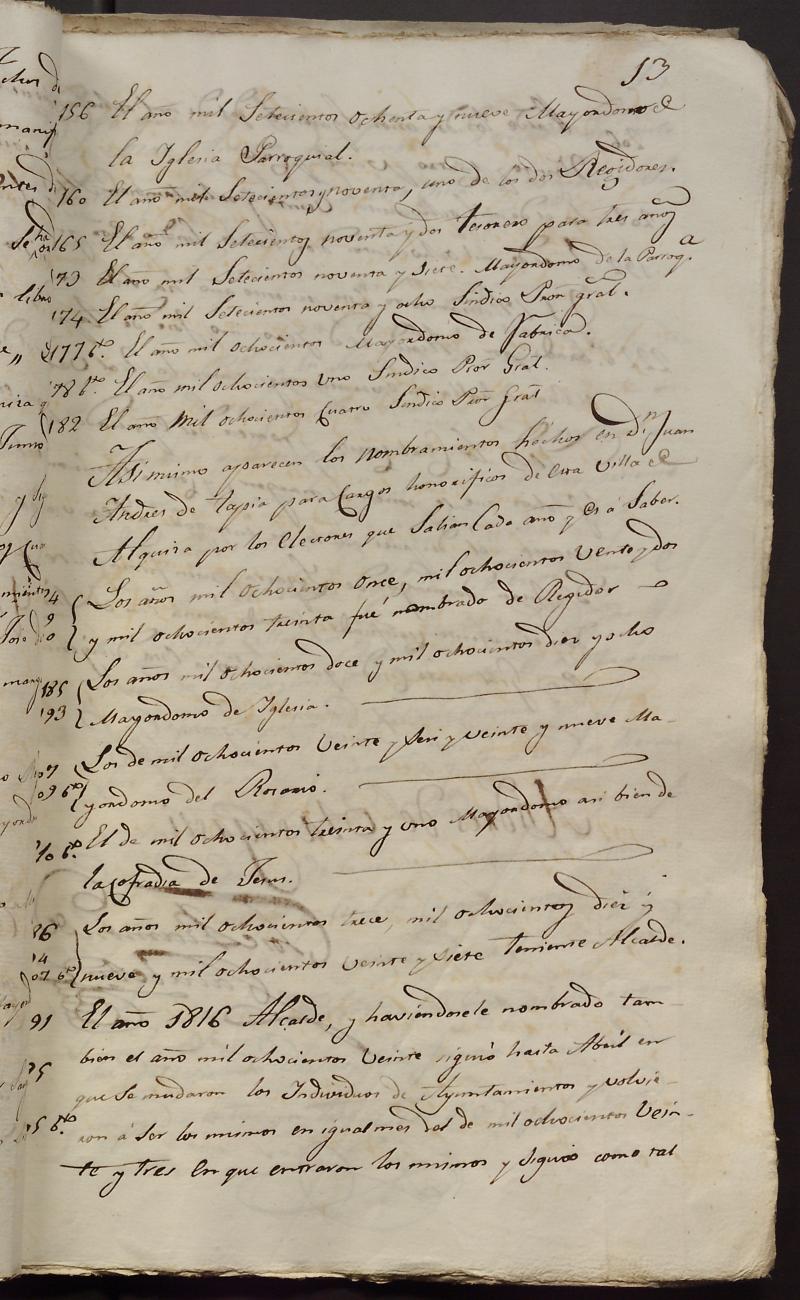 13
156 El año mil Setecientos ochenta y nueve Mayordomo de
la Iglesia Parroquial.
160 El año mil Setecientos y noventa, uno de los dos Regidores.
165 El año mil Setecientos noventa y dos tesorero para tres años
173 El año mil Setecientos noventa y siete. Mayordomo de la Parroq.a
174 El año mil Setecientos noventa y ocho Sindico Pror. gral.
177 bto. El año mil ochocientos Mayordomo de fabrica.
178 bto. El año mil ochocientos uno Sindico Pror Gral.
182 El año Mil ochocientos Cuatro Sindico Pror Gral
Asimismo aparecen los nombramientos hechos en Dn. Juan
Andres de tapia para Cargos honorificos de esta Villa de
Alquira por los Electores que Salian Cada año y es á Saber.
Los años mil ochocientos once, mil ochocientos Vente y dos
y mil ochocientos treinta fué nombrado de Regidor
185 Los años mil ochocientos doce y mil ochocientos diez y ocho
193 Mayordomo de Iglesia.
Los de mil ochocientos Veinte y Seis y veinte y nueve Ma-
yordomo del Rosario.
El de mil ochocientos treinta y uno Mayordomo asi bien de
la Cofradia de Jesus.
Los años mil ochocientos trece, mil ochocientos diez y
nueve y mil ochocientos veinte y siete teniente Alcalde.
El año 1816 Alcalde, y haviendosele nombrado tam-
bien el año mil ochocientos Veinte siguió hasta Abril en
que Se mudaron los Individuos de Ayuntamientos y volvie-
ron á Ser los mismos en igual mes del de mil ochocientos Vein-
te y tres en que entraron los mismos y siguió como tal